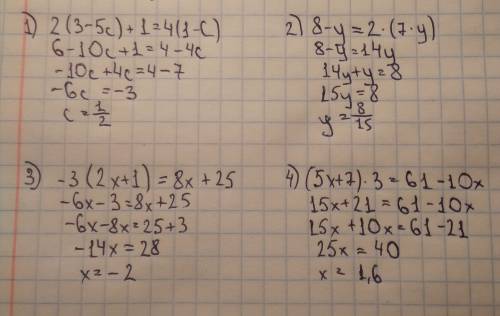 1) 2(3-5c)+1=4(1-C)
6-10c+1=4-4c
-10c+4c=4-7
-6c =-3
c=1/2
2) 8-y=2·(7·y)
8-y=14y
14y+y=8
15y=8
y=8/15
3) -3(2x+1)=8x+25
-6x-3=8x+25
-6x-8x=25+3
-14x=28
x=-2
4) (5x+7)·3=61-10x
15x+21=61-10x
15x+10x=61-21
25x=40
x=1,6